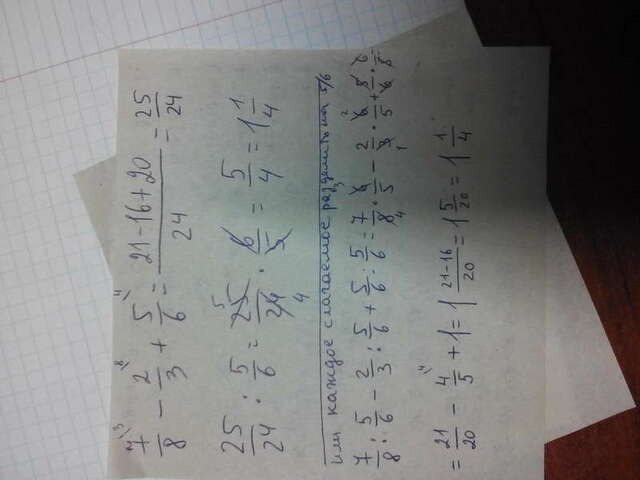 7/8 - 2/3 + 5/6 = (21-16+20)/24 = 25/24
25/24 : 5/6 = 25/24 · 6/5 = 5/4 = 1 1/4
или каждое слагаемое разделить на 5/6
7/8 : 5/6 - 2/3 : 5/6 + 5/6 : 5/6 = 7/8 · 6/5 - 2/3 · 6/5 + 5/6 · 6/5
= 21/20 - 4/5 + 1 = 1 (21-16)/20 = 1 5/20 = 1 1/4